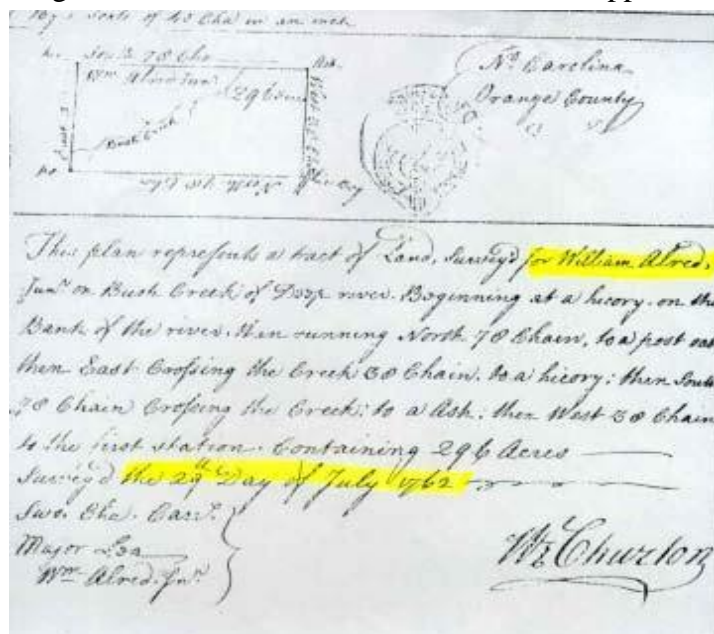 by a Scale of 40 Cha in an inch
Sou. 78 Cha
Ash.
Wm. Alred Junr.
296 acres
Bush Creek
West 38 Cha
North 78 Cha
Hicory
No. Carolina
Orange County
This plan represents a tract of Land, Survey'd for William Alred,
Junr. on Bush Creek of Deep river. Beginning at a hicory. on the
Bank of the river. then running North 78 Chain, to a post oak
then East Crossing the Creek 38 Chain. to a hicory; then South
78 Chain Crossing the Creek; to a Ash; then West 38 Chain
to the first station. Containing 296 Acres
Survey'd the 29th Day of July 1762
Swo. Cha. Carrs.
Major
Wm. Alred. Junr.
Wm Churton